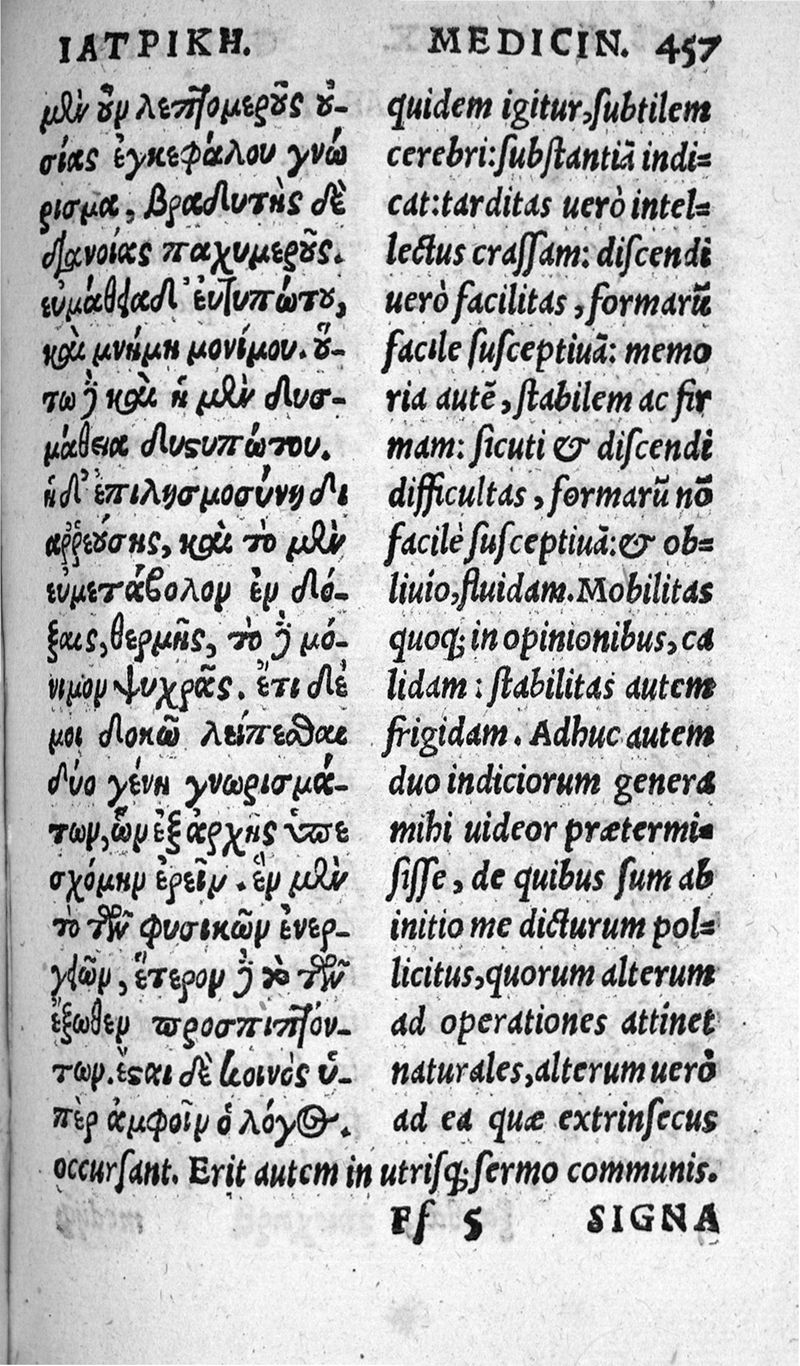 ΙΑΤΡΙΚΗ.
μὲν οὖν λεπτομεροῦς οὐ-
σίας ἐγκεφάλου γνώ
ρισμα, βραδυτὴς δὲ
διανοίας παχυμεροῦς.
εὐμάθεια δ' εὐτυπώτου,
καὶ μνήμη μονίμου. οὕ-
τω δὲ καὶ ἡ μὲν δυσ-
μάθεια δυστυπώτου.
ἡ δ' ἐπιλησμοσύνη δι
αῤῥεούσης, καὶ τὸ μὲν
εὐμετάβολον ἐν δό-
ξαις, θερμῆς, τὸ δὲ μό-
νιμον ψυχρᾶς. ἔτι δέ
μοι δοκῶ λείπεσθαι
δύο γένη γνωρισμά-
των, ὧν ἐξ ἀρχῆς ὑπε
σχόμην ἐρεῖν. ἓν μὲν
τὸ τῶν φυσικῶν ἐνερ-
γειῶν, ἕτερον δὲ τὸ τῶν
ἔξωθεν προσπιπτόν-
των. ἔσαι δὲ κοινὸς ὑ-
πὲρ ἀμφοῖν ὁ λόγος.
MEDICIN. 457
quidem igitur, subtilem
cerebri: substantiā indi=
cat: tarditas uerò intel=
lectus crassam: discendi
uerò facilitas, formarū
facile susceptiuā: memo
ria autē, stabilem ac fir
mam: sicuti & discendi
difficultas, formarū nō
facilè susceptiuā: & ob=
liuio, fluidam. Mobilitas
quoq; in opinionibus, ca
lidam: stabilitas autem
frigidam. Adhuc autem
duo indiciorum genera
mihi uideor prætermi=
sisse, de quibus sum ab
initio me dicturum pol=
licitus, quorum alterum
ad operationes attinet
naturales, alterum uerò
ad ea quæ extrinsecus
occursant. Erit autem in utrisq; sermo communis.
Ff 5 SIGNA